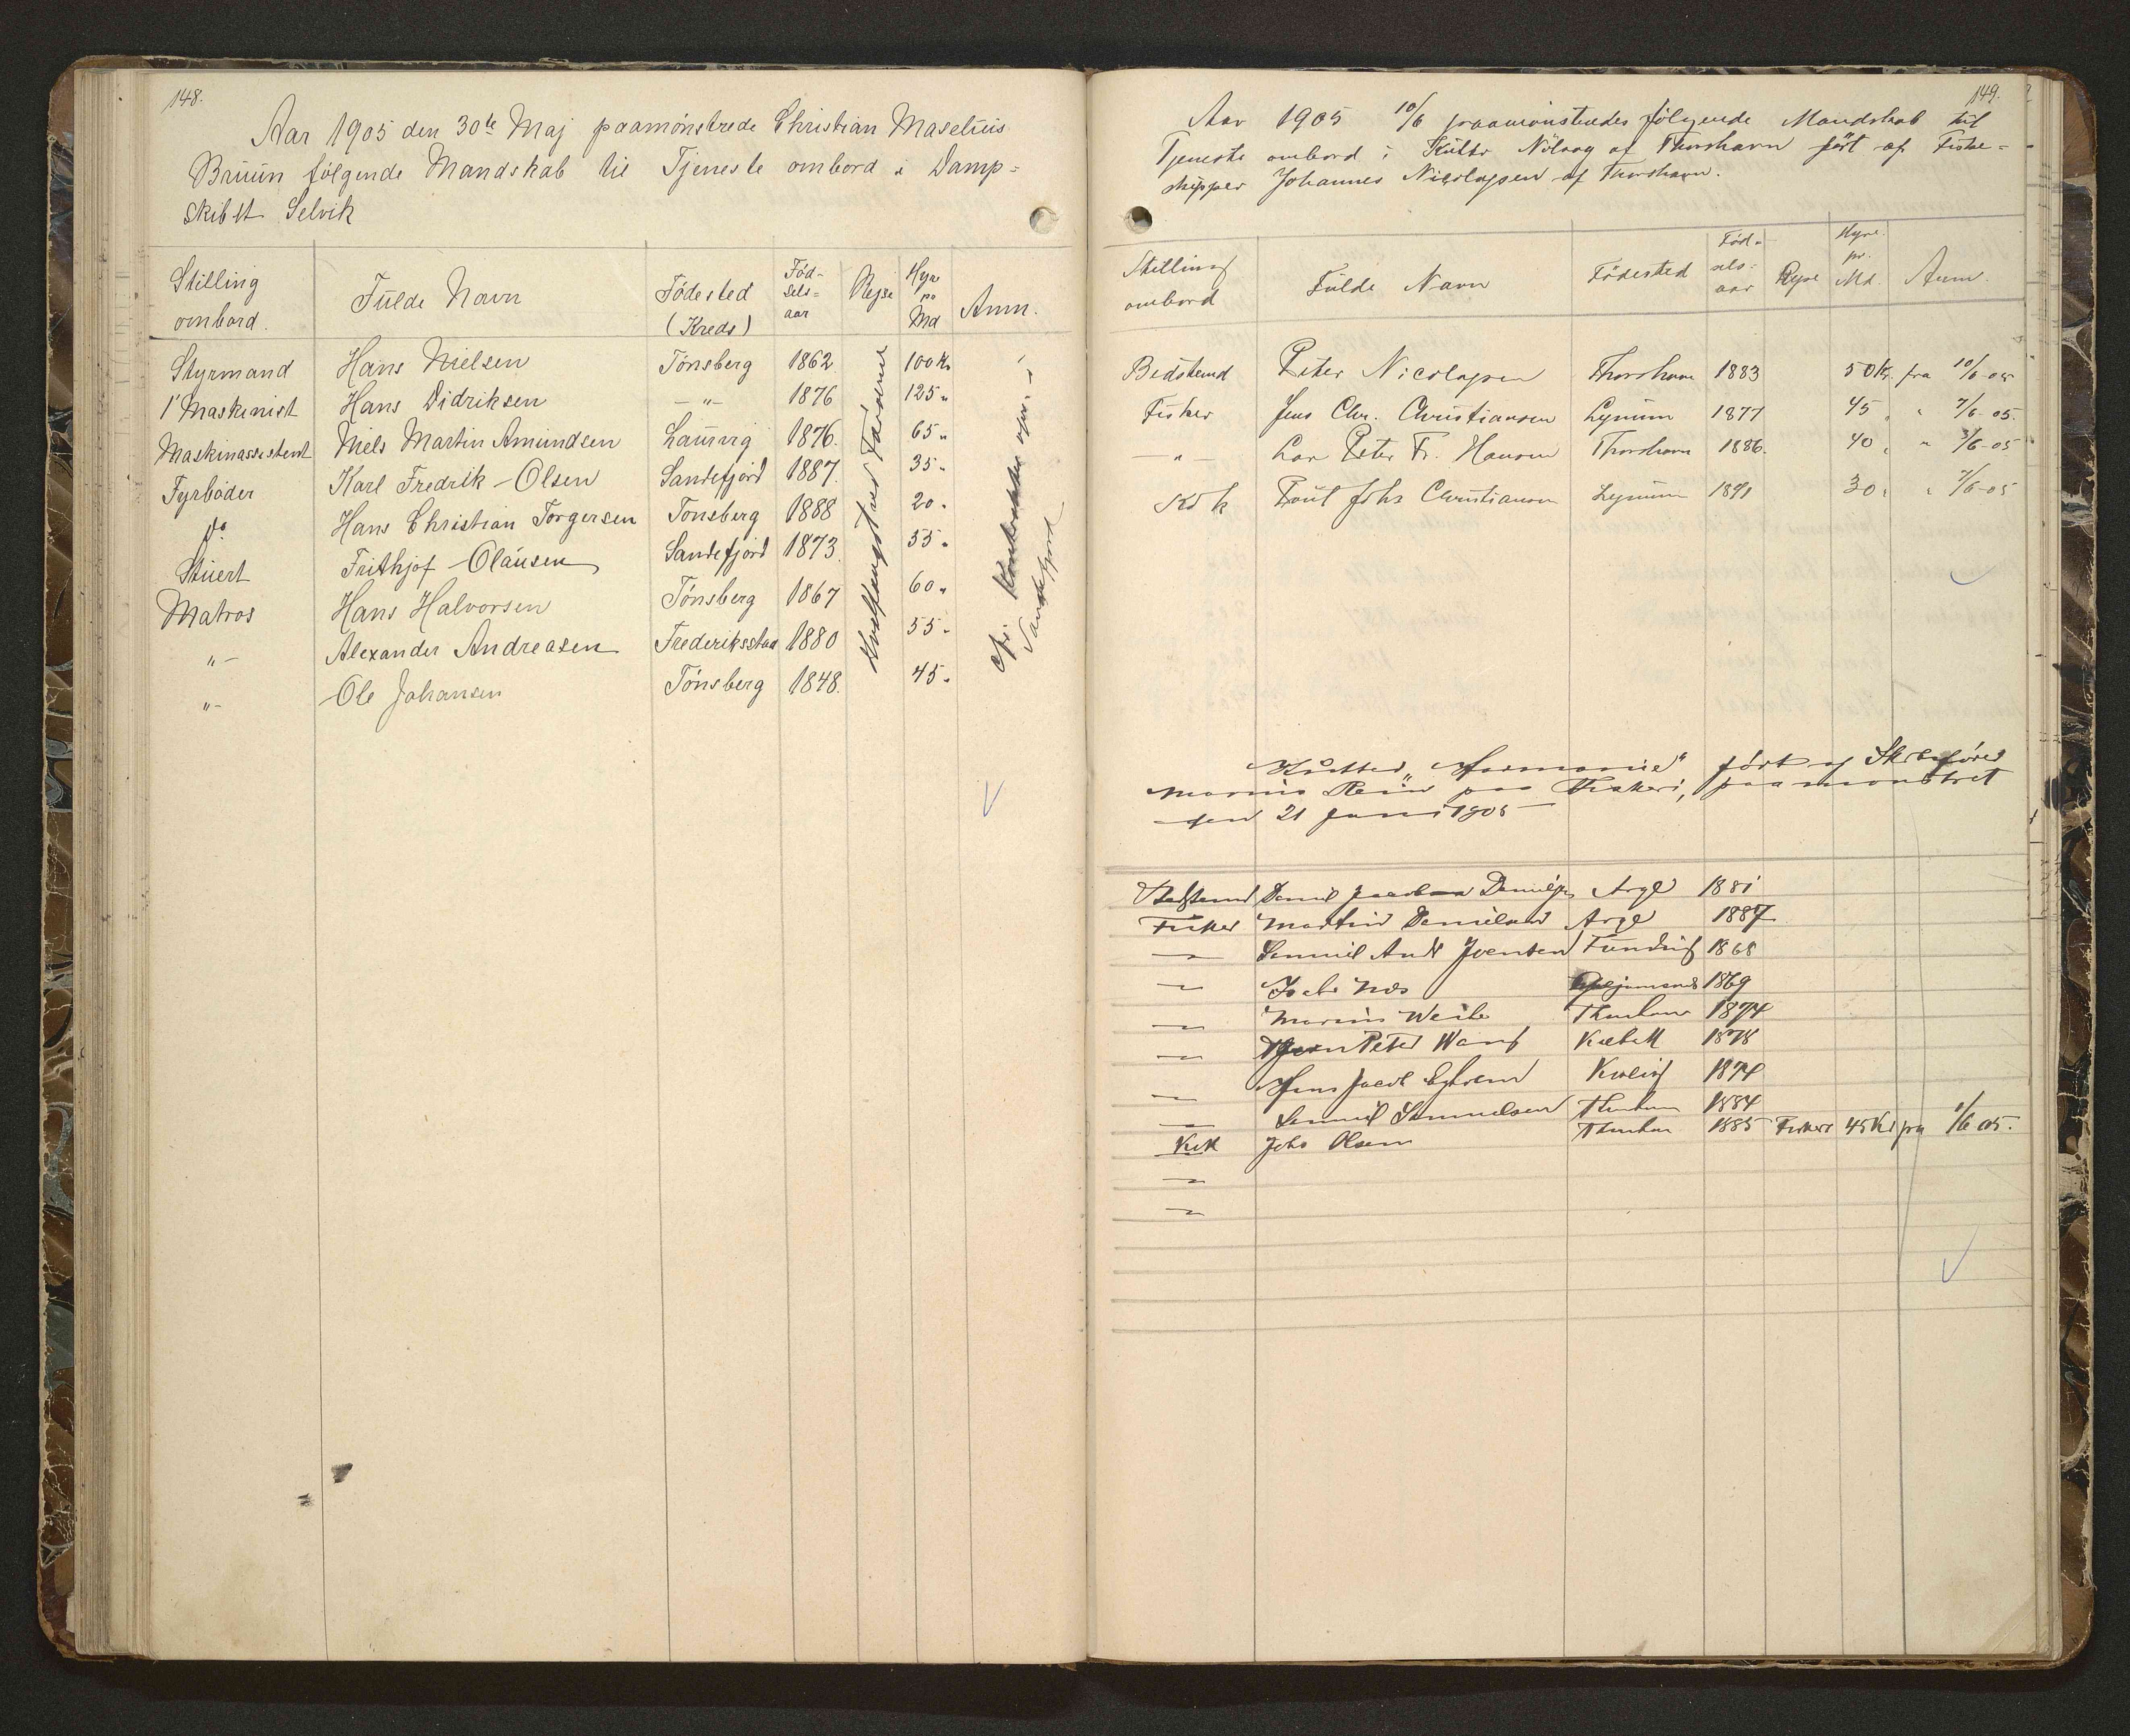 148.
Aar 1905 den 30te Maj paamønstrede Christian Maselius
Bruun følgende Mandskab til Tjeneste ombord i Damp=
skibet Selvik
Stilling ombord. Fulde Navn Fødested (Kreds) Fød-sels=aar Rejse Hyre pr Md Anm.
Styrmand Hans Nielsen Tønsberg 1862 100 Kr
1' Maskinist Hans Didriksen — " — 1876 125 "
Maskinassistent Niels Martin Amundsen Laurvig 1876. 65 "
Fyrbøder Karl Fredrik Olsen Sandefjord 1887. 35 "
Do Hans Christian Torgersen Tønsberg 1888 20 "
Stuert Frithjof Olausen Sandefjord 1873 55 "
Matros Hans Halvorsen Tønsberg 1867 60 "
" — Alexander Andreasen Frederiksstad 1880 55 "
" — Ole Johansen Tønsberg 1848. 45 "
Hvalfangst ved Færøerne
cfr. Kontrakter opr. i
Sandefjord
149.
Aar 1905 10/6 paamønstredes følgende Mandskab til
Tjeneste ombord i Kutter Nólsoy af Thorshavn ført af Fiske=
skipper Johannes Nicolajsen af Thorshavn.
Stilling ombord Fulde Navn Fødested Fød-sels-aar Rejse Hyre pr. Md. Anm.
Bedstemd Peter Nicolajsen Thorshavn 1883 50 Kr. fra 10/6-05
Fisker Jens Chr. Christiansen Lynum 1877 45 " " 7/6-05.
— " — Peter Fr. Hansen Thorshavn 1886. 40 " " 7/6-05
Kok Poul Johs Christiansen Lynum 30 " " 7/6-05
Kutter "Harmonie" ført af Skibsfører
Marius paa Fiskeri, paamønstret
den 21 Juni 1905
Bedstemd Daniel Jacob Danielsen Arge 1881
Fisker Martin Danielsen Arge 1887
— " — Samuel And Joensen Funding 1868
— " — 1869
— " — Marius Weihe Thorshavn 1874
— " — Peter Wang 1878
— " — Hans Jacob Kvivig 1874
— " — Samuel Samuelsen Thorshavn 1884
Kok Johs Olsen Thorshavn 1885 Fiskeri 45 Kr fra 1/6 05.
— " —
— " —